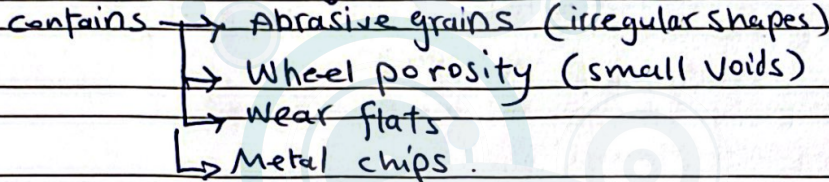 contains → Abrasive grains (irregular shapes)
→ Wheel porosity (small voids)
→ Wear flats
→ Metal chips.